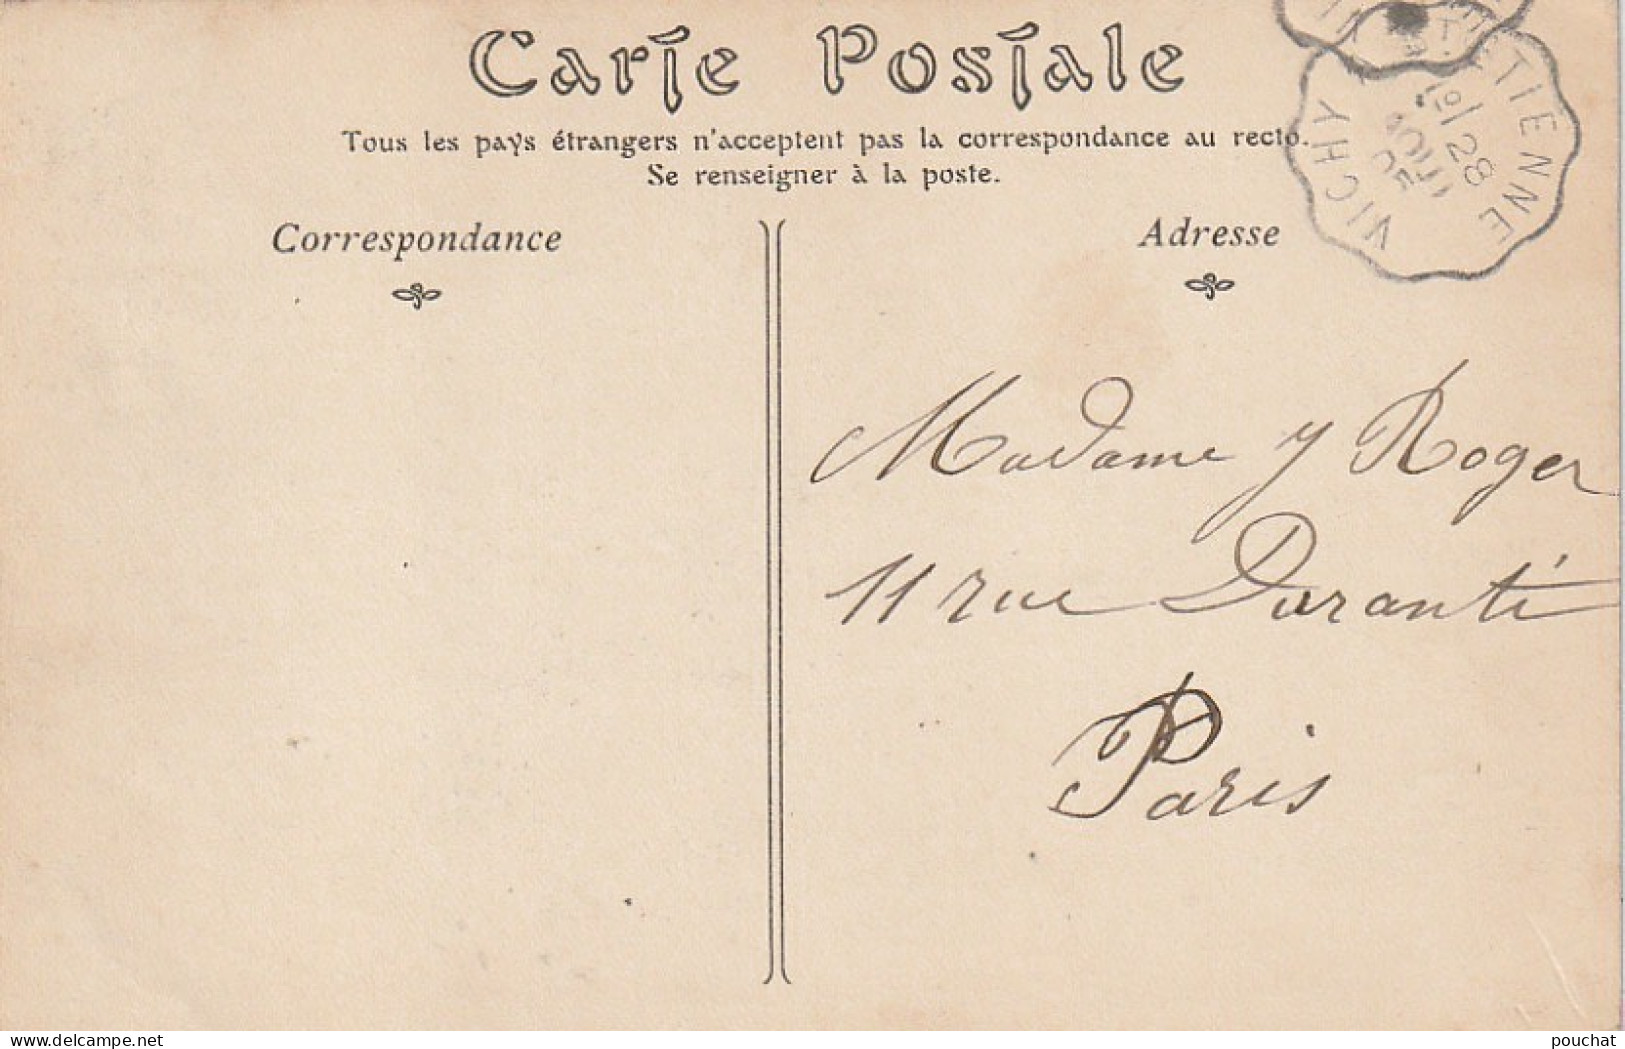 Carte Postale
Tous les pays étrangers n'acceptent pas la correspondance au recto.
Se renseigner à la poste.
Correspondance
Adresse
VICHY
ETIENNE
28
AOUT
05
Madame Y Roger
11 rue Duranti
Paris
delcampe.net
pouchat